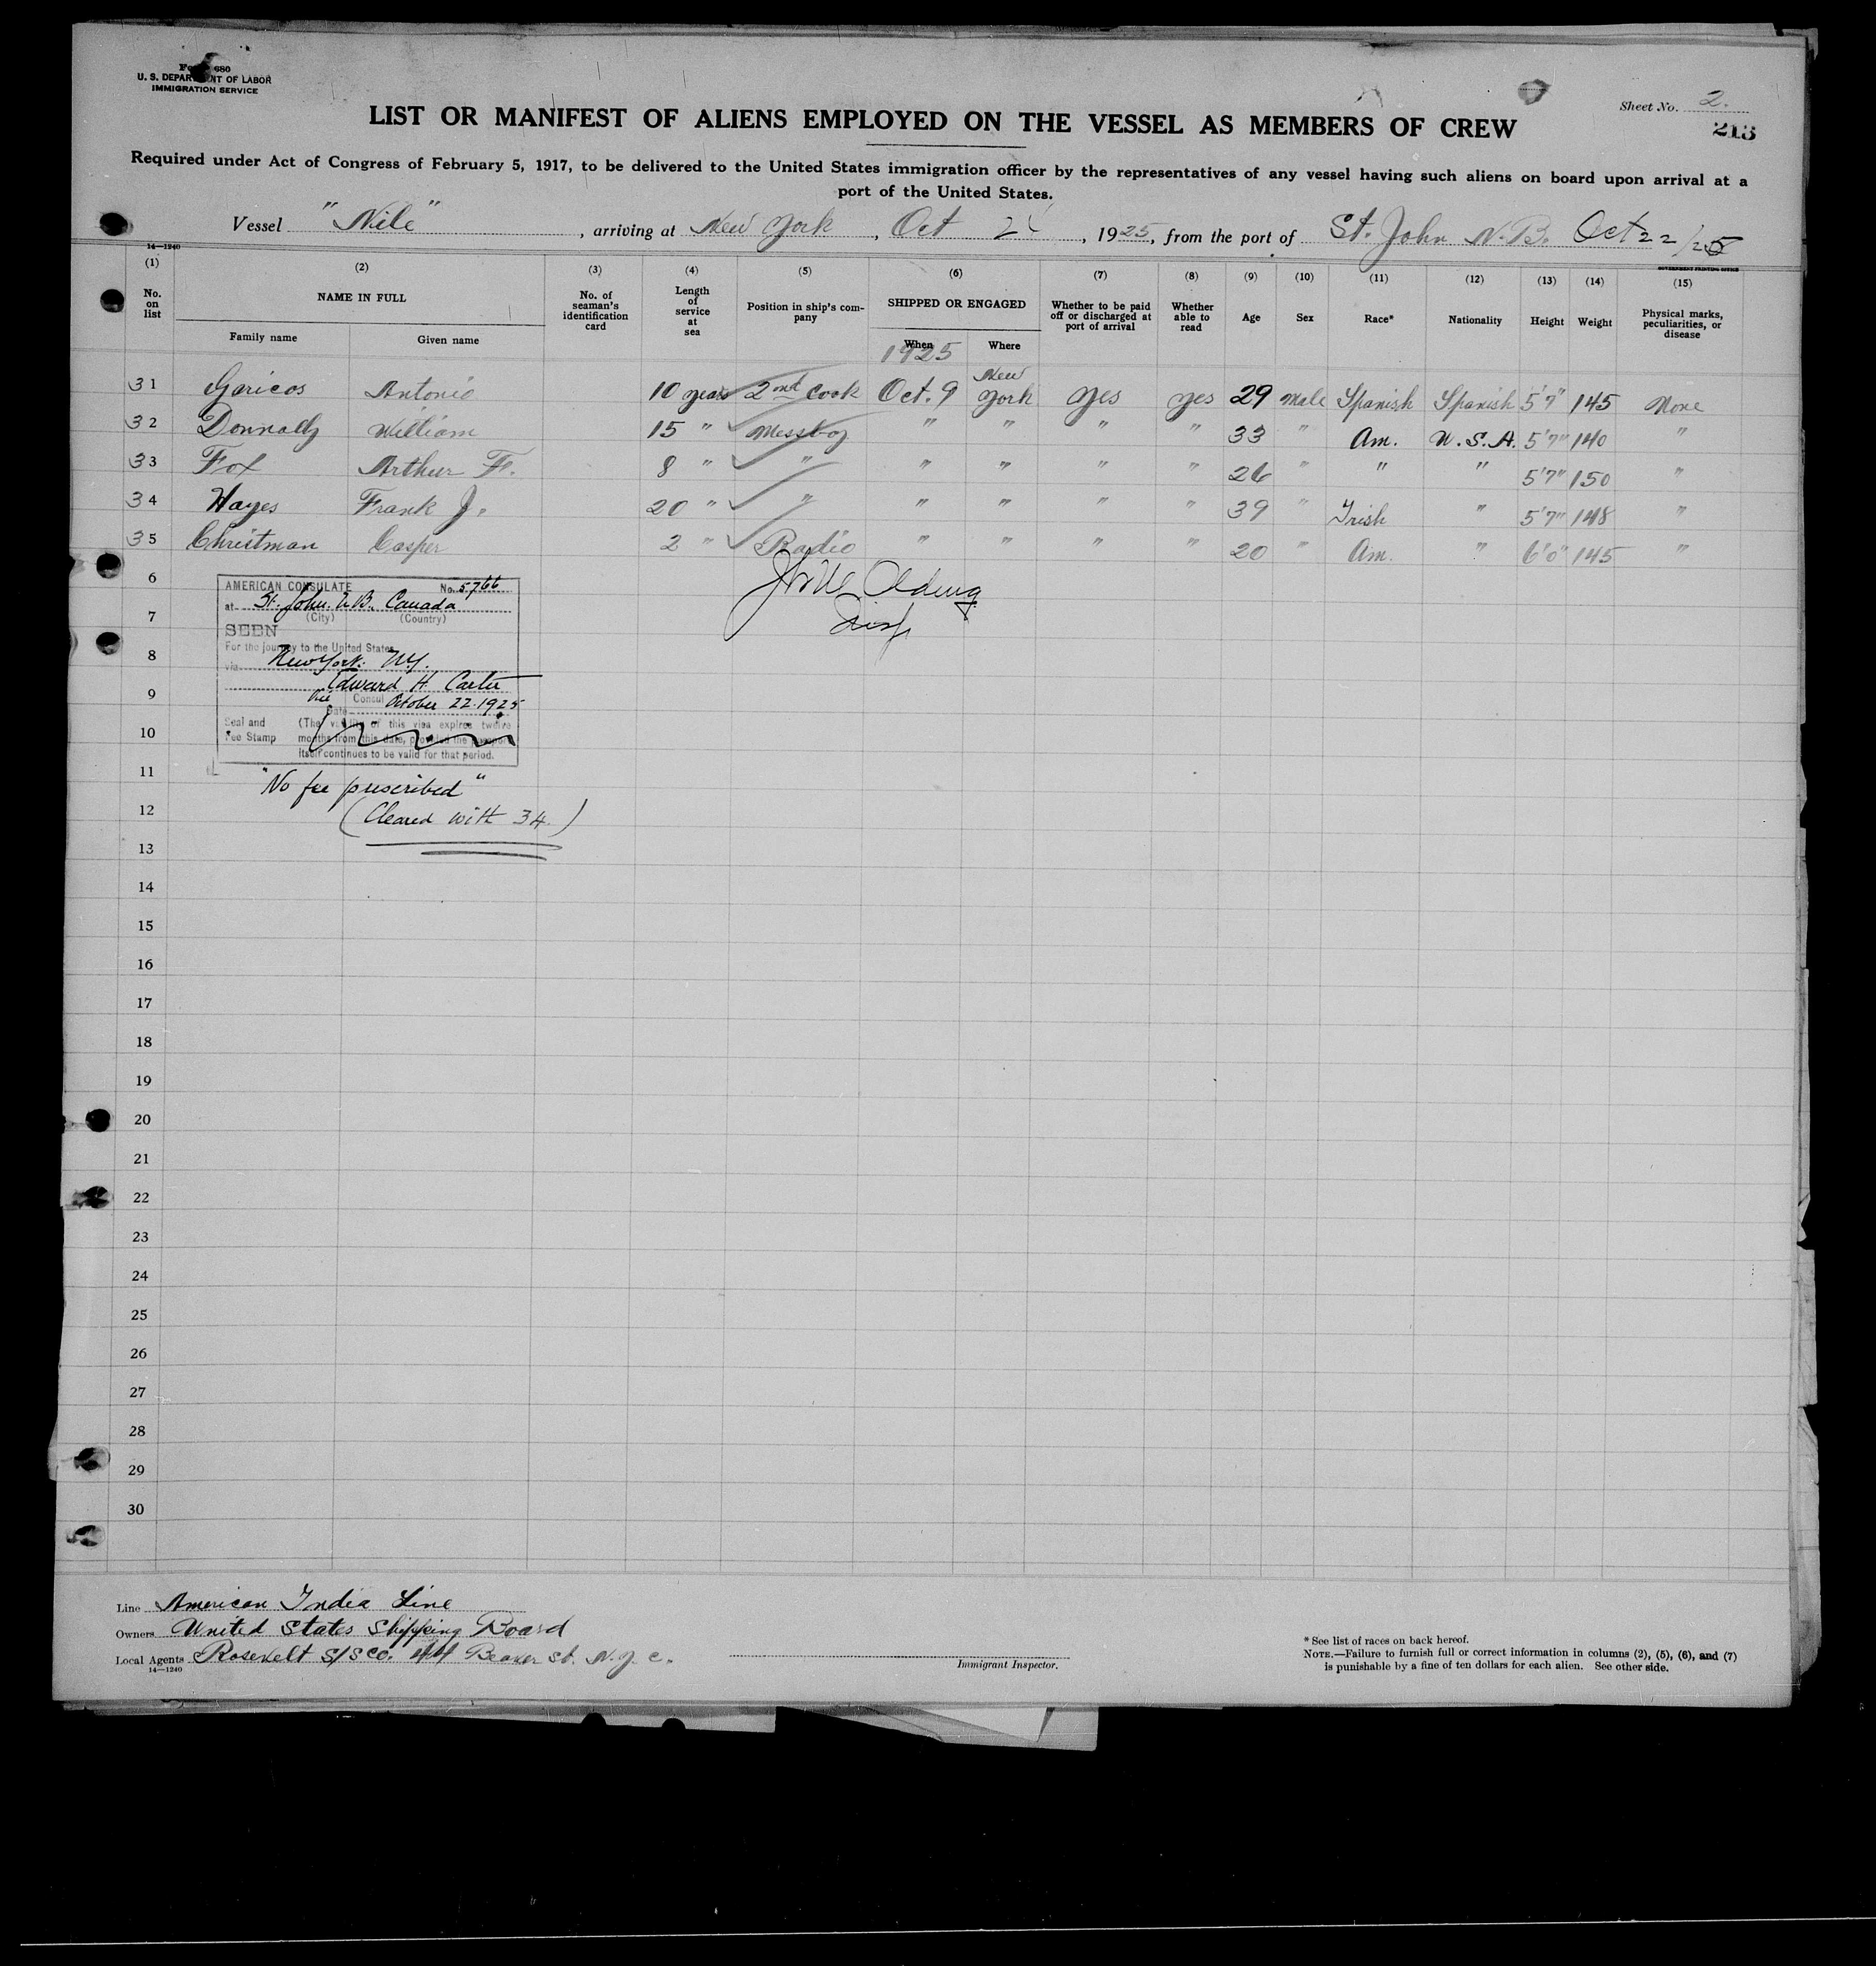 Form 680
U. S. DEPARTMENT OF LABOR
IMMIGRATION SERVICE
Sheet No. 2.
LIST OR MANIFEST OF ALIENS EMPLOYED ON THE VESSEL AS MEMBERS OF CREW
213
Required under Act of Congress of February 5, 1917, to be delivered to the United States immigration officer by the representatives of any vessel having such aliens on board upon arrival at a
port of the United States.
Vessel "Nile", arriving at New York, Oct, 1925, from the port of St. John N.B. Oct 22/25
14—1240
GOVERNMENT PRINTING OFFICE
(1) (2) (3) (4) (5) (6) (7) (8) (9) (10) (11) (12) (13) (14) (15)
No. on list NAME IN FULL Family name Given name No. of seaman's identification card Length of service at sea Position in ship's company SHIPPED OR ENGAGED When Where Whether to be paid off or discharged at port of arrival Whether able to read Age Sex Race* Nationality Height Weight Physical marks, peculiarities, or disease
1925
31 Garicos Antonio 10 years 2nd Cook Oct. 9 New York yes yes 29 Male Spanish Spanish 5'7" 145 None
32 Donnolly William 15 " Messboy " " " " 33 " Am. U.S.A. 5'7" 140 "
33 Fox Arthur F. 8 " " " " " " 26 " " " 5'7" 150 "
34 Hayes Frank J. 20 " " " " " " 39 " Irish " 5'7" 148 "
35 Christman Casper 2 " Radio " " " " 20 " Am. " 6'0" 145 "
6
7
8
9
10
11
12
13
14
15
16
17
18
19
20
21
22
23
24
25
26
27
28
29
30
AMERICAN CONSULATE No. 5766
at St. John. N.B. Canada
(City) (Country)
SEEN
For the journey to the United States
via New York. N.Y.
Edward H. Carter
Vice Consul
Date October 22. 1925
Seal and Fee Stamp
(The validity of this visa expires twelve
months from this date, provided the passport
itself continues to be valid for that period.
"No fee prescribed"
(Cleared with 34.)
Line American India Line
Owners United States Shipping Board
Local Agents Rosevelt S/S Co. 44 Beaver St. N.Y.C.
14—1240
Immigrant Inspector.
* See list of races on back hereof.
NOTE.—Failure to furnish full or correct information in columns (2), (5), (6), and (7)
is punishable by a fine of ten dollars for each alien. See other side.